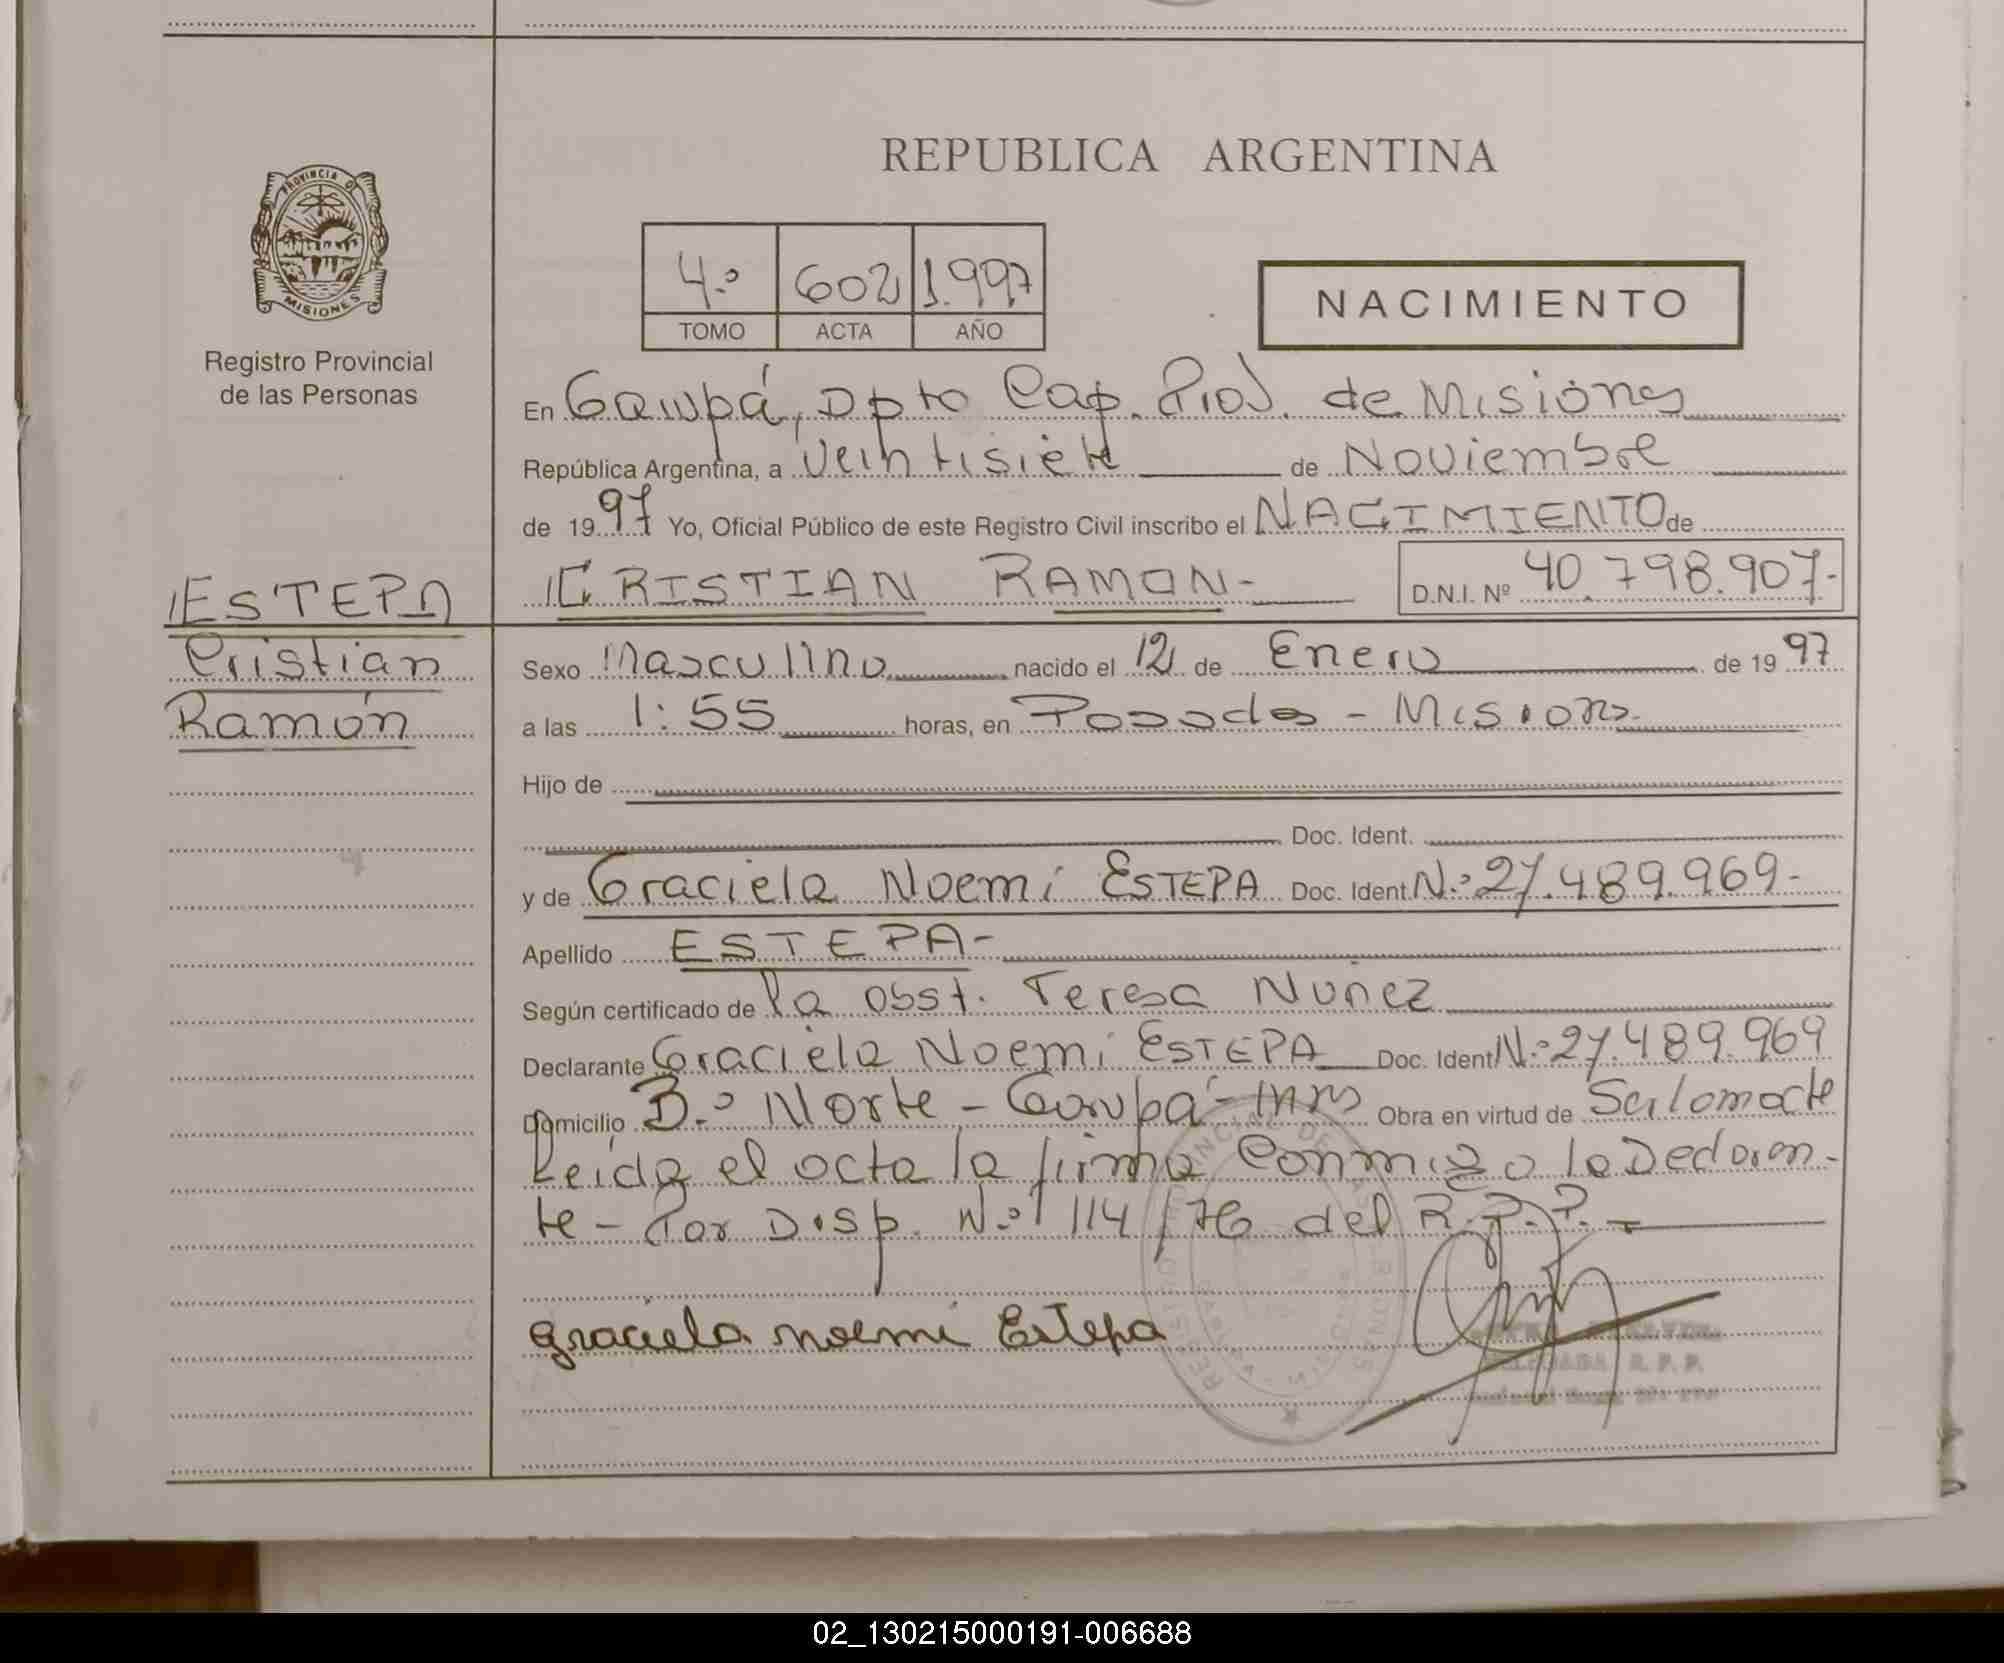 PROVINCIA DE
MISIONES
Registro Provincial
de las Personas
REPUBLICA ARGENTINA
4.º 602 1.997
TOMO ACTA AÑO
NACIMIENTO
En Garupá, Dpto Cap. Prov. de Misiones
República Argentina, a Veintisiete de Noviembre
de 1997 Yo, Oficial Público de este Registro Civil inscribo el NACIMIENTO de
CRISTIAN RAMON- D.N.I. Nº 40.798.907-
ESTEPA
Cristian
Ramón
Sexo Masculino nacido el 12 de Enero de 1997
a las 1:55 horas, en Posadas - Misiones-
Hijo de
Doc. Ident.
y de Graciela Noemi ESTEPA Doc. Ident. N.º 27.489.969-
Apellido ESTEPA-
Según certificado de la obst. Teresa Nuñez
Declarante Graciela Noemi ESTEPA Doc. Ident N.º 27.489.969
Domicilio B.º Norte - Garupá - Mns Obra en virtud de
Leida el acta la firma Conmigo la Declaran-
te - Por Disp. N.º 114/76 del R.P.P. -
graciela noemi Estepa
R. P. P.
02_130215000191-006688